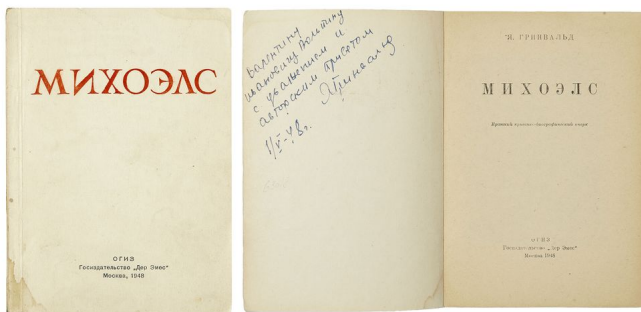 МИХОЭЛС
ОГИЗ
Госиздательство „Дер Эмес"
Москва, 1948
Валентину
Ивановичу
с уважением и
авторским приветом
ЯГринвальд
1/V-48г.
Я. ГРИНВАЛЬД
МИХОЭЛС
Краткий критико-биографический очерк
ОГИЗ
Госиздательство „Дер Эмес"
Москва 1948